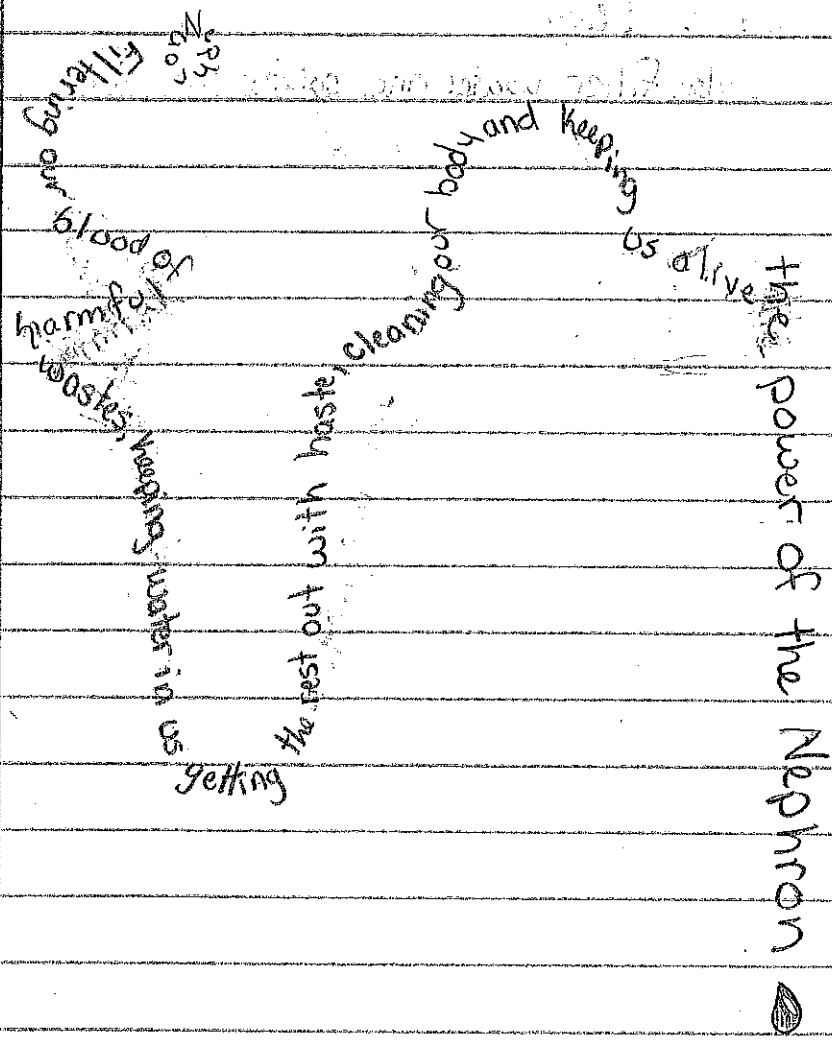 Nephron
Filtering our
blood of
harmful
wastes, keeping water in us
getting
the rest out with haste, cleaning our body and keeping
us alive
the power of the Nephron